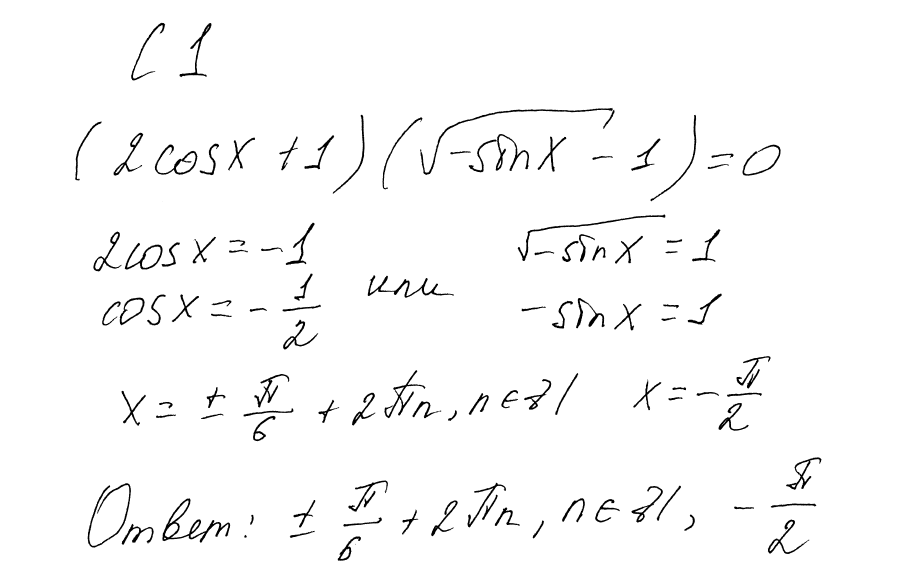 C1
(2cosx + 1)(√(-sinx) - 1) = 0
2cosx = -1 √(-sinx) = 1
cosx = -1/2 или -sinx = 1
x = ± π/6 + 2πn, n∈Z x = -π/2
Ответ: ± π/6 + 2πn, n∈Z, -π/2